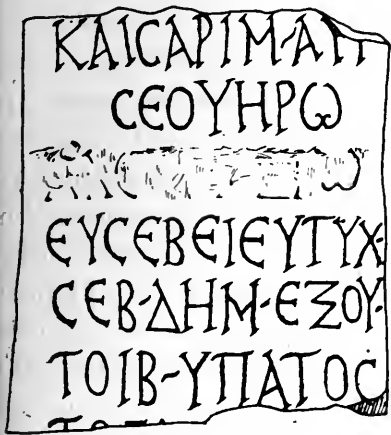 ΚΑΙCΑΡΙΜ·ΑΥ
CΕΟΥΗΡω
ΕΥCΕΒΕΙΕΥΤΥΧ·
CΕΒ·ΔΗΜ·ΕΞΟΥ·
ΤΟΙΒ·ΥΠΑΤΟC